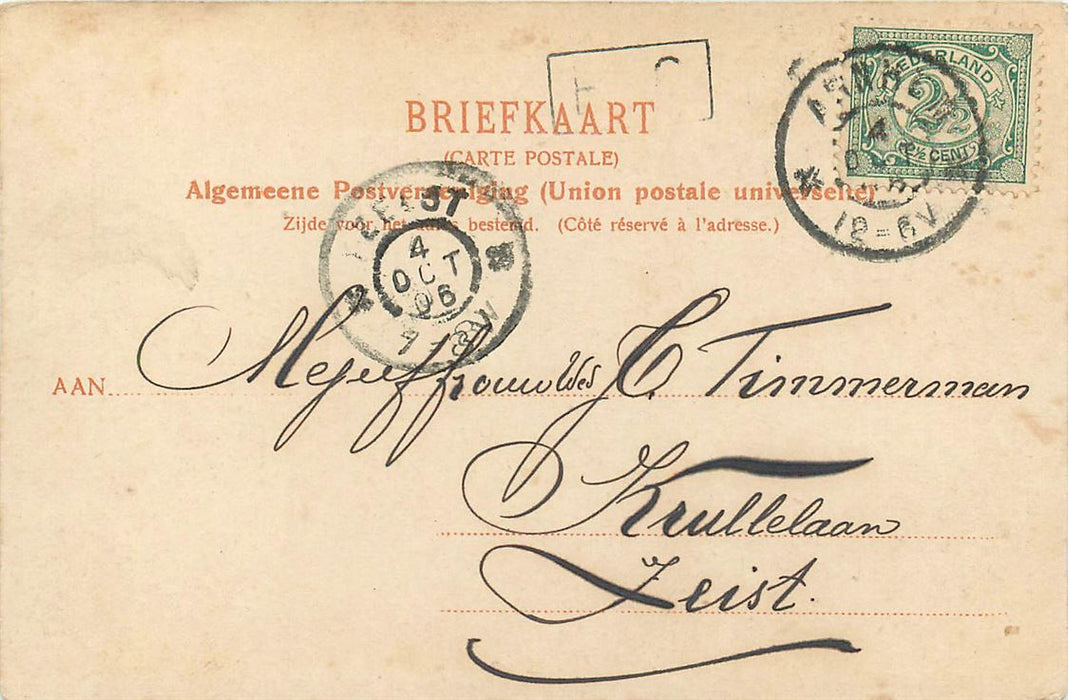 BRIEFKAART
(CARTE POSTALE)
Algemeene Postvereeniging (Union postale universelle)
Zijde voor het adres bestemd. (Côté réservé à l'adresse.)
NEDERLAND
2½
2½ CENT
ARNHEM
12-6V
ZEIST
4
OCT
06
AAN Mejuffrouw Wed C. Timmerman
Krullelaan
Zeist.